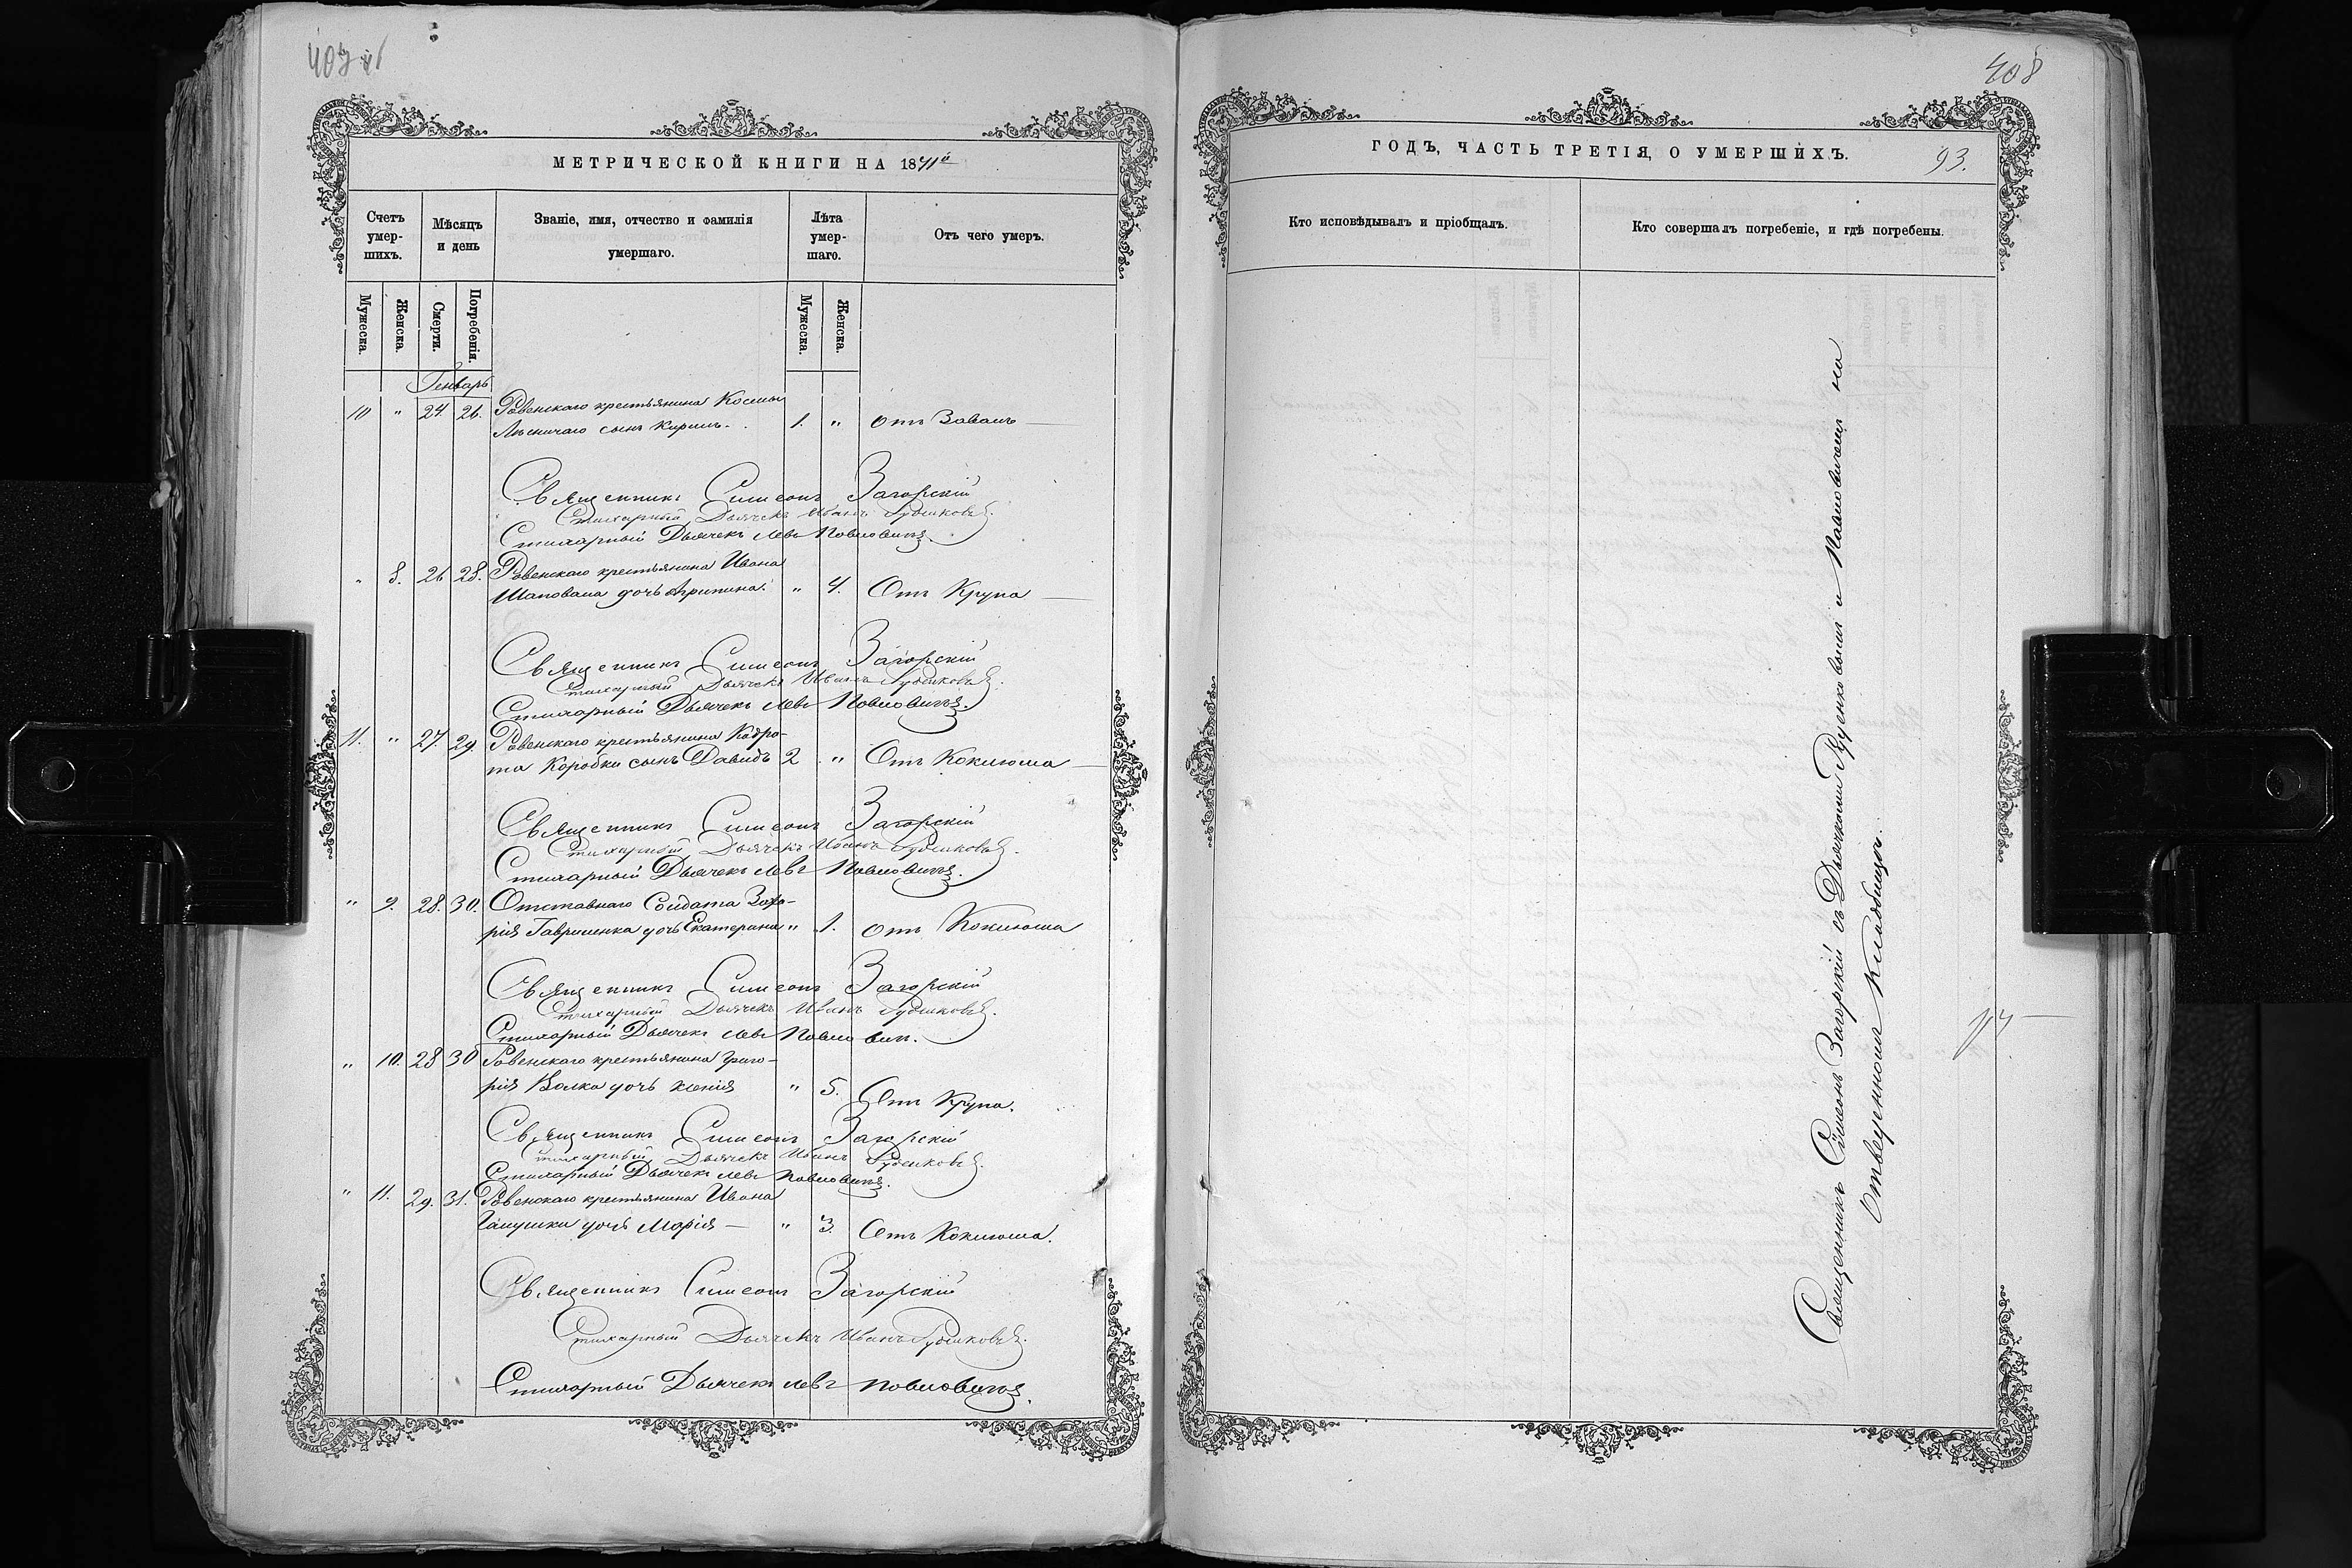 МЕТРИЧЕСКОЙ КНИГИ НА 1871й
Счетъ умер-шихъ.
Мѣсяцъ и день
Званіе, имя, отчество и фамилія умершаго.
Лѣта умер-шаго.
Отъ чего умеръ.
Мужеска.
Женска.
Смерти.
Погребенія.
Мужеска.
Женска.
Генварь
10 " 24. 26. Ровенскаго крестьянина Космы
Лѣсничаго сынъ Кирилъ. 1. " Отъ Завалъ
Священникъ Симеонъ Загорскій
Стихарный Дьячекъ Иванъ Руденковъ.
Стихарный Дьячекъ Левъ Павловичъ.
" 8. 26 28. Ровенскаго крестьянина Ивана
Шаповала дочь Агрипина. " 4. Отъ Крупа
Священникъ Симеонъ Загорскій
Стихарный Дьячекъ Иванъ Руденковъ.
Стихарный Дьячекъ Левъ Павловичъ.
11. " 27. 29. Ровенскаго крестьянина Кодра-
та Коробки сынъ Давидъ 2 " Отъ Коклюша
Священникъ Симеонъ Загорскій
Стихарный Дьячекъ Иванъ Руденковъ.
Стихарный Дьячекъ Левъ Павловичъ.
" 9. 28. 30. Отставнаго Солдата Заха-
рія Гавриленка дочь Екатерина " 1. Отъ Коклюша
Священникъ Симеонъ Загорскій
Стихарный Дьячекъ Иванъ Руденковъ.
Стихарный Дьячекъ Левъ Павловичъ.
" 10. 28 30 Ровенскаго крестьянина Григо-
рія Волка дочь Ксенія " 5. Отъ Крупа.
Священникъ Симеонъ Загорскій
Стихарный Дьячекъ Иванъ Руденковъ.
Стихарный Дьячекъ Левъ Павловичъ.
" 11. 29. 31. Ровенскаго крестьянина Ивана
Галушки дочь Марія — " 3. Отъ Коклюша.
Священникъ Симеонъ Загорскій
Стихарный Дьячекъ Иванъ Руденковъ.
Стихарный Дьячекъ Левъ Павловичъ.
408
ГОДЪ, ЧАСТЬ ТРЕТІЯ, О УМЕРШИХЪ.
93.
Кто исповѣдывалъ и пріобщалъ.
Кто совершалъ погребеніе, и гдѣ погребены.
Священникъ Симеонъ Загорскій съ Дьячками Руденковымъ и Павловичемъ на
Отведенномъ Кладбищѣ.